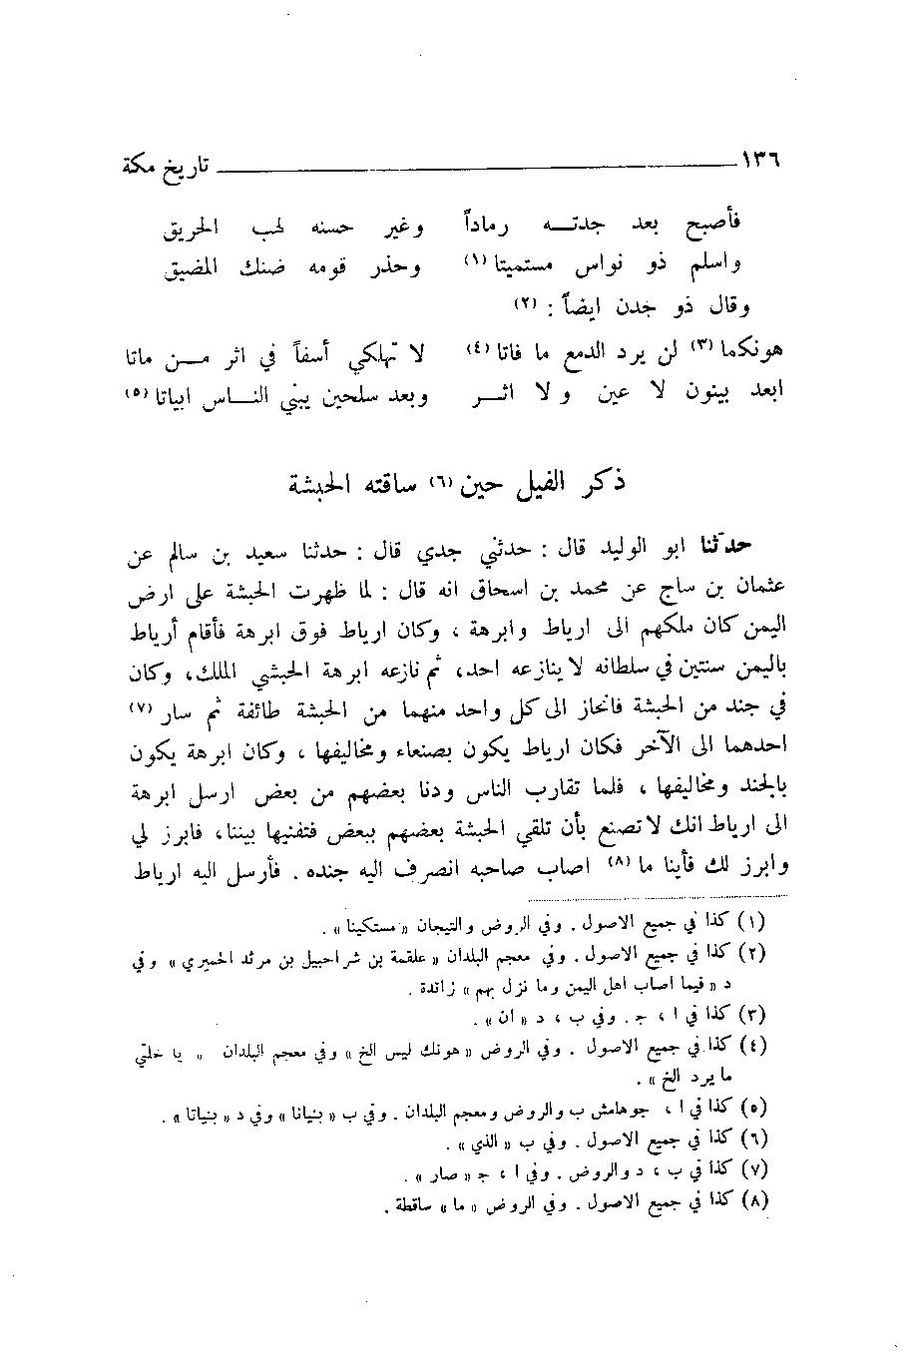 ١٣٦ تاريخ مكة
فأصبح بعد جدتـــه رماداً وغير حسنه لهب الحريق
واسلم ذو نواس مستميتا (١) وحذر قومه ضنك المضيق
وقال ذو جدن ايضاً : (٢)
هونكما (٣) لن يرد الدمع ما فاتا (٤) لا تهلكي أسفاً في اثر مـــن ماتا
ابعد بينون لا عين ولا اثـــر وبعد سلحين يبني النـــاس ابياتا (٥)
ذكر الفيل حين (٦) ساقته الحبشة
حدثنا ابو الوليد قال : حدثني جدي قال : حدثنا سعيد بن سالم عن
عثمان بن ساج عن محمد بن اسحاق انه قال : لما ظهرت الحبشة على ارض
اليمن كان ملكهم الى ارياط وابرهة ، وكان ارياط فوق ابرهة فأقام أرياط
باليمن سنتين في سلطانه لا ينازعه احد، ثم نازعه ابرهة الحبشي الملك، وكان
في جند من الحبشة فانحاز الى كل واحد منهما من الحبشة طائفة ثم سار (٧)
احدهما الى الآخر فكان ارياط يكون بصنعاء ومخاليفها ، وكان ابرهة يكون
بالجند ومخاليفها ، فلما تقارب الناس ودنا بعضهم من بعض ارسل ابرهة
الى ارياط انك لا تصنع بأن تلقي الحبشة بعضهم ببعض فتفنيها بيننا، فابرز لي
وابرز لك فأينا ما (٨) اصاب صاحبه انصرف اليه جنده . فأرسل اليه ارياط
(١) كذا في جميع الاصول . وفي الروض والتيجان « مستكينا » .
(٢) كذا في جميع الاصول . وفي معجم البلدان « علقمة بن شراحبيل بن مرثد الحميري » وفي
د « فيما اصاب اهل اليمن وما نزل بهم » زائدة .
(٣) كذا في ا ، ج . وفي ب ، د « ان » .
(٤) كذا في جميع الاصول . وفي الروض « هونك ليس الخ » وفي معجم البلدان « يا خلتي
ما يرد الخ » .
(٥) كذا في ا ، جوهامش ب والروض ومعجم البلدان . وفي ب « بنيانا » وفي د « بنياتا » .
(٦) كذا في جميع الاصول . وفي ب « الذي » .
(٧) كذا في ب ، د والروض . وفي ا ، ج « صار » .
(٨) كذا في جميع الاصول . وفي الروض « ما » ساقطة .